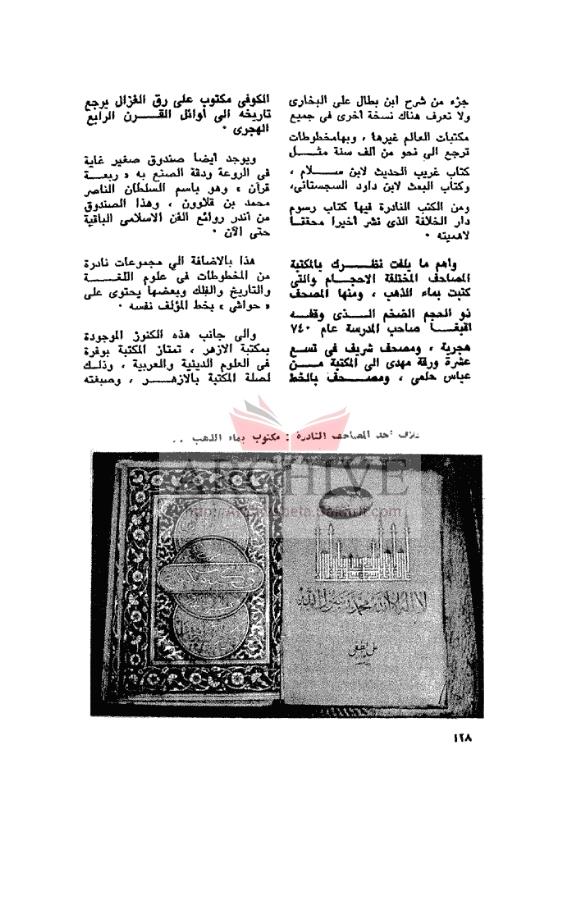 جزء من شرح ابن بطال على البخارى
ولا تعرف هناك نسخة أخرى فى جميع
مكتبات العالم غيرها ، وبهامخطوطات
ترجع الى نحو من ألف سنة مثــــل
كتاب غريب الحديث لابن ســـلام ،
وكتاب البعث لابن داود السجستانى،
ومن الكتب النادرة فيها كتاب رسوم
دار الخلافة الذى نشر أخيرا محققـا
لاهميته ٠
وأهم ما يلفت نظـــرك بالمكتبة
المصاحف المختلفة الاحجــام والتى
كتبت بماء الذهب ، ومنها المصحف
ذو الحجم الضخم الــــذى وقفــه
اقبغــا صاحب المدرسة عام ٧٤٠
هجرية ، ومصحف شريف فى تســع
عشرة ورقة مهدى الى المكتبة مــــن
عباس حلمى ، ومصـــحف بالخط
الكوفى مكتوب على رق الغزال يرجع
تاريخه الى أوائل القــــرن الرابع
الهجرى ٠
ويوجد أيضا صندوق صغير غاية
فى الروعة ودقة الصنع به « ربعــــة
قرآن » وهو باسم السلطان الناصر
محمد بن قلاوون ، وهذا الصندوق
من أندر روائع الفن الاسلامى الباقية
حتى الآن ٠
هذا بالاضافة الى مجموعات نادرة
من المخطوطات فى علوم اللغــــة
والتاريخ والفلك وبعضها يحتوى على
« حواشى » بخط المؤلف نفسه ٠
والى جانب هذه الكنوز الموجودة
بمكتبة الازهر ، تمتاز المكتبة بوفرة
فى العلوم الدينية والعربية ، وذلــك
لصلة المكتبة بالازهـــــر ، وصبغته
غلاف أحد المصاحف النادرة : مكتوب بماء الذهب ٠٠
ARCHIVE
لا اله الا الله محمد رسول الله
١٢٨